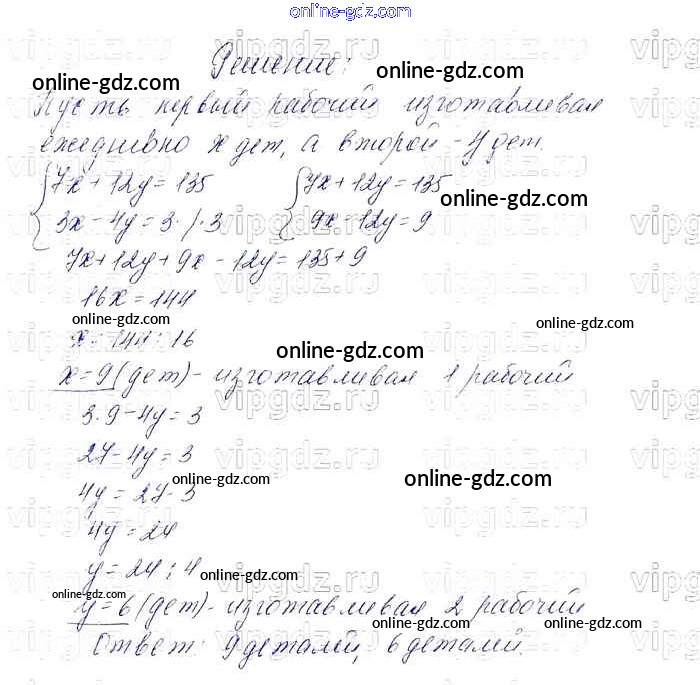 online-gdz.com
Решение:
online-gdz.com online-gdz.com
Пусть первый рабочий изготавливал
ежедневно x дет, а второй - y дет.
7x+12y=135 7x+12y=135
online-gdz.com
3x-4y=3 /·3 9x-12y=9
7x+12y+9x-12y=135+9
16x=144
online-gdz.com online-gdz.com
x=144:16
online-gdz.com
x=9(дет)-изготавливал 1 рабочий
3·9-4y=3
27-4y=3
online-gdz.com online-gdz.com
4y=27-3
4y=24
y=24:4
online-gdz.com
online-gdz.com
y=6(дет)-изготавливал 2 рабочий
Ответ: 9 деталей, 6 деталей.